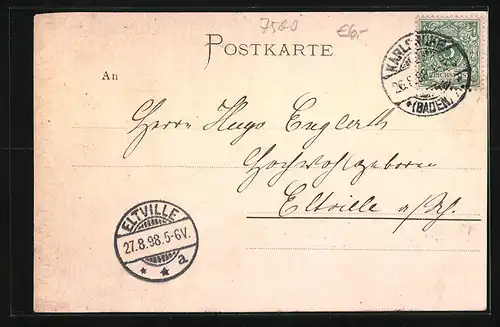 7500 €6,-
POSTKARTE
KARLSRUHE
26.8.98
(BADEN)
An
Herrn Hugo Englerth
Hochwohlgeboren
Eltville a/Rh.
ELTVILLE
27.8.98.5-6V.
* * a